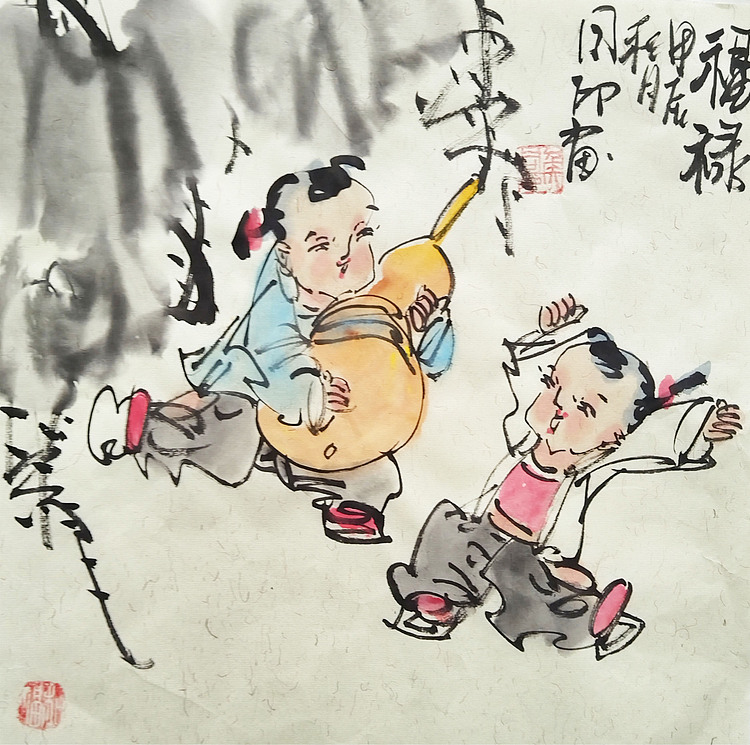 福禄
甲辰
秋月
印画